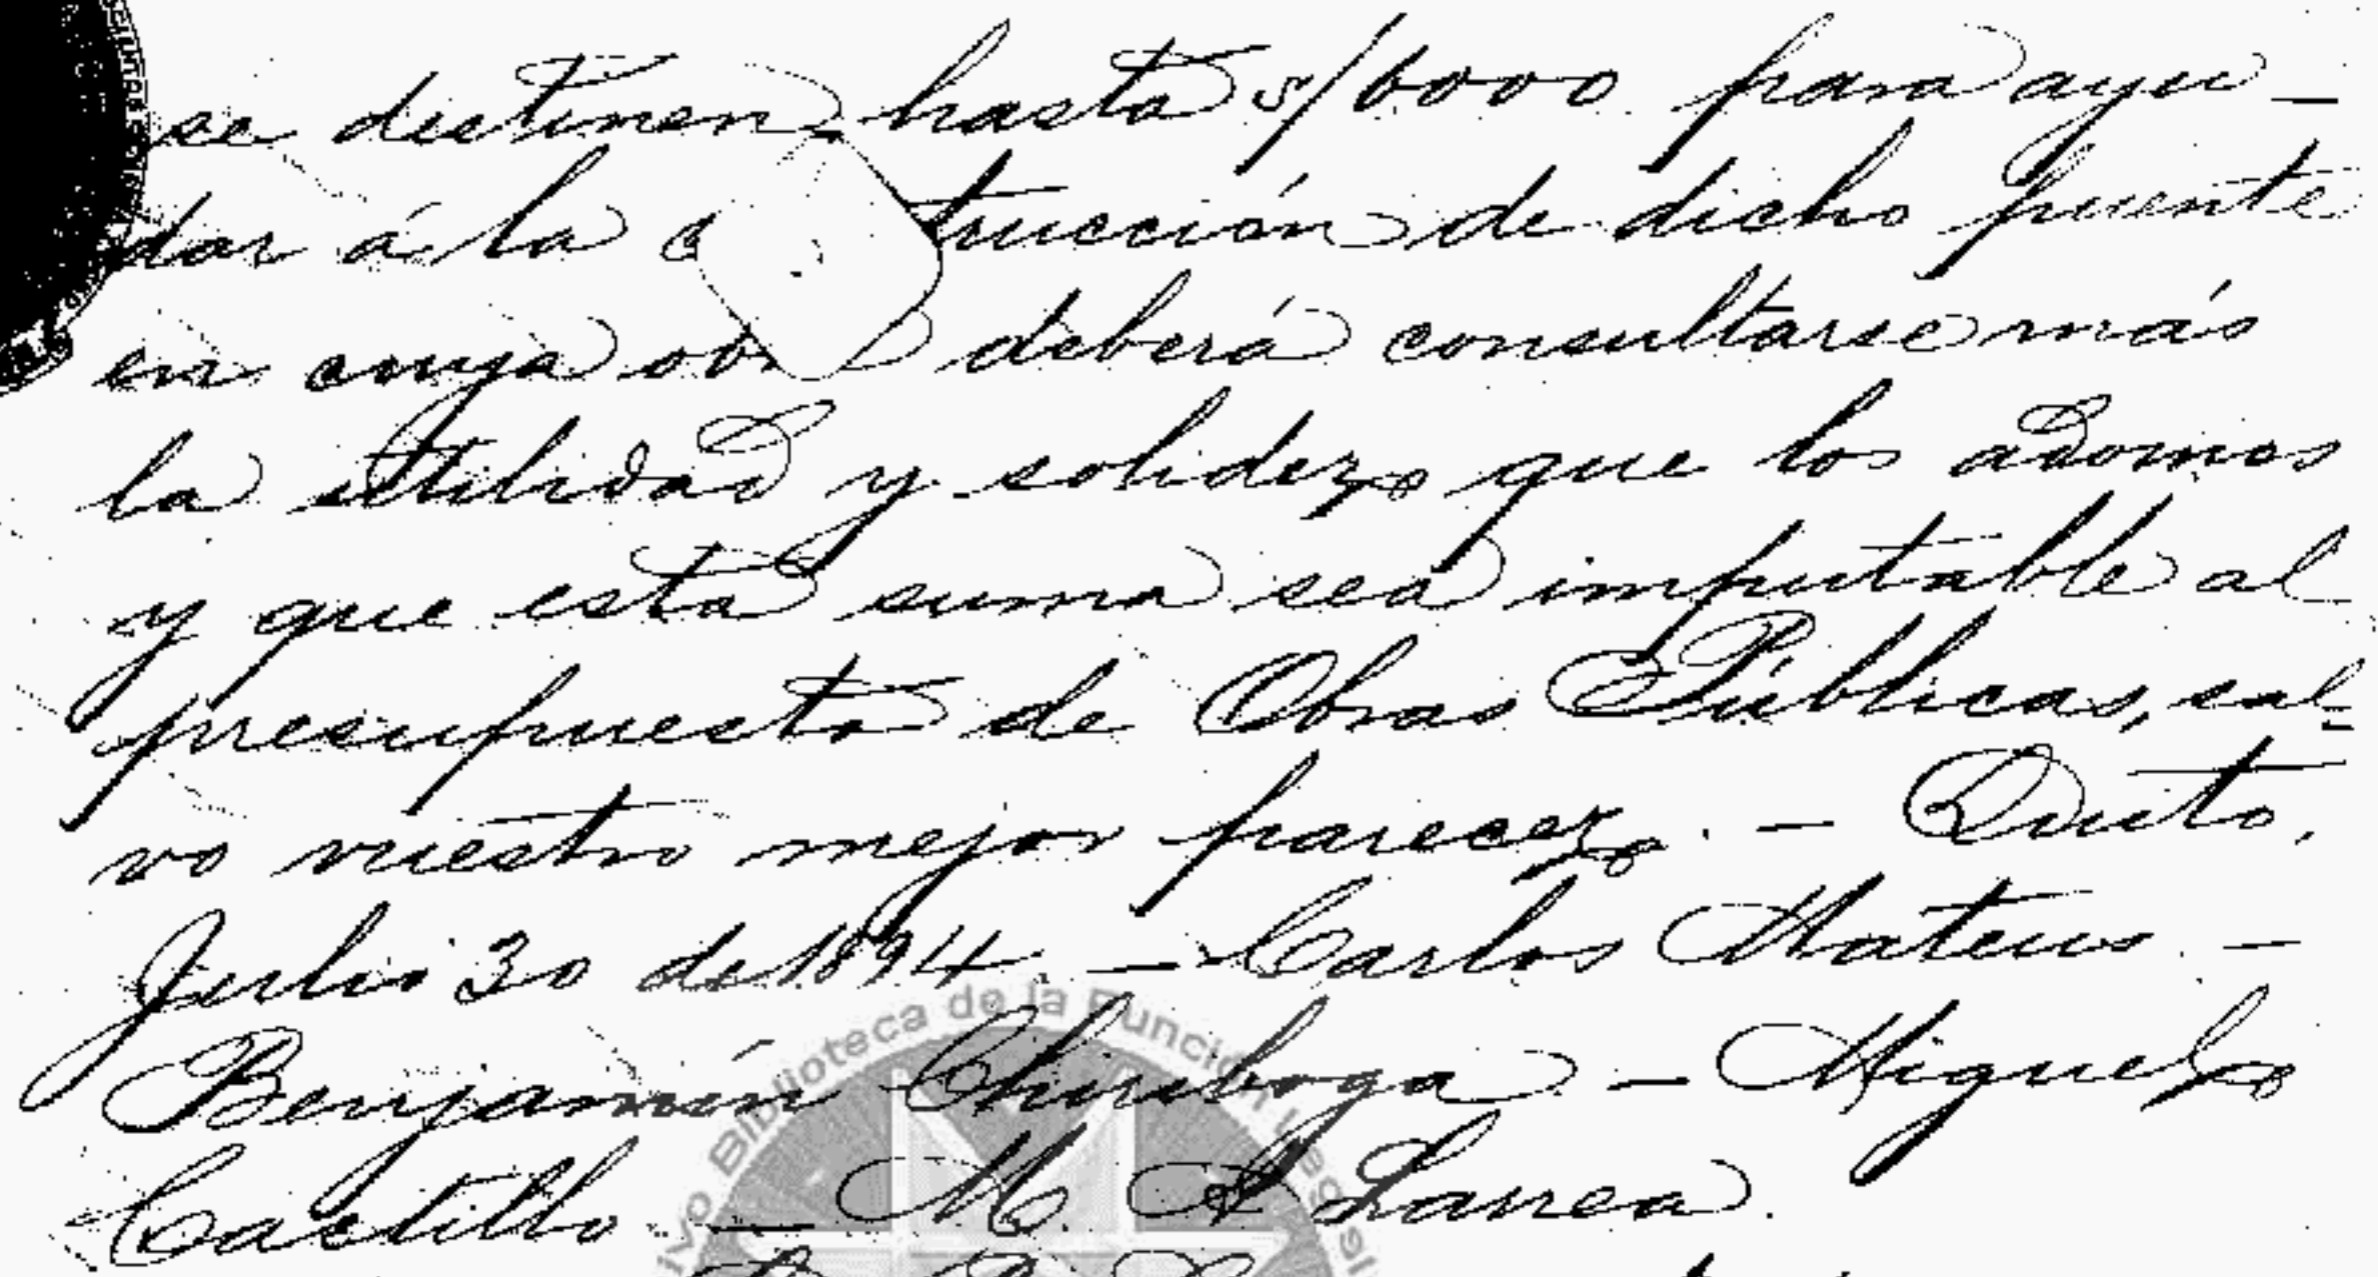 se destinen hasta s/6000 para ayu-
dar á la c trucción de dicho puente
en cuya ob deberá consultarse más
la utilidad y solidez que los adornos
y que esta suma sea imputable al
presupuesto de Obras Públicas, sal-
vo vuestro mejor parecer. - Quito,
Julio 30 de 1894. - Carlos Mateus. -
Benjamín Chiriboga - Miguel
Castillo. - M. A. Larrea.
ivo Biblioteca de la Función Legisl